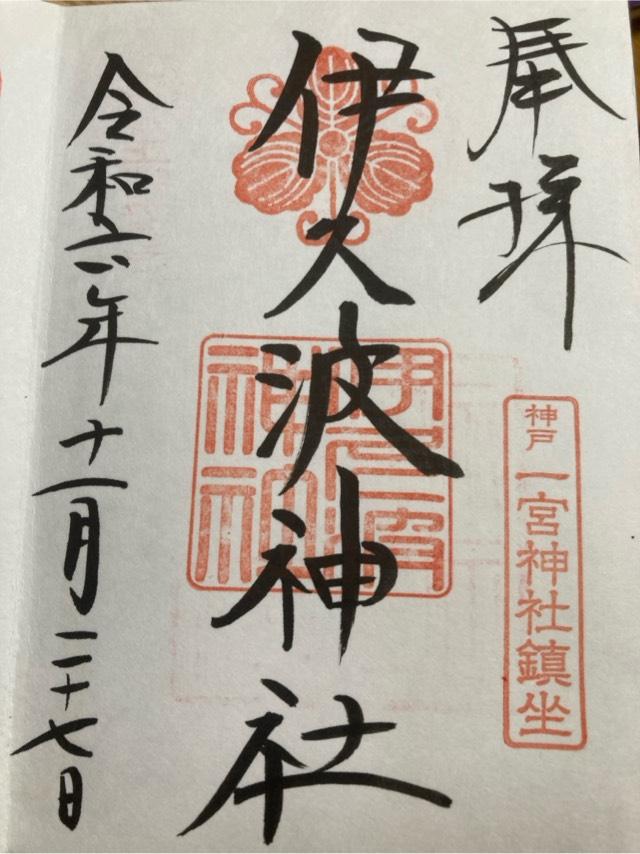 奉拝
神戸 一宮神社鎮坐
伊久波神社
伊久波神社
令和六年十一月二十七日